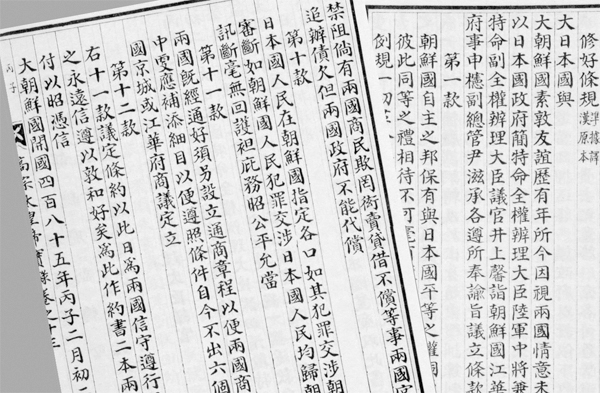 修好條規
準據譯
漢原本
大日本國與
大朝鮮國素敦友誼歷有年所今因視兩國情意未
以日本國政府簡特命全權辨理大臣陸軍中將兼
特命副全權辨理大臣議官井上馨詣朝鮮國江華
府事申櫶副總管尹滋承各遵所奉諭旨議立條款
第一款
朝鮮國自主之邦保有與日本國平等之權
彼此同等之禮相待不可毫
例規一切
禁阻倘有兩國商民欺罔衒賣貸借不償等事兩國官
追辦債欠但兩國政府不能代償
第十款
日本國人民在朝鮮國指定各口如其犯罪交涉朝
審斷如朝鮮國人民犯罪交涉日本國人民均歸朝
訊斷毫無回護袒庇務昭公平允當
第十一款
兩國旣經通好須另設立通商章程以便兩國商
中需應補添細目以便遵照條件自今不出六個
國京城或江華府商議定立
第十二款
右十一款議定條約以此日爲兩國信守遵行
之永遠信遵以敦和好矣爲此作約書二本兩
付以昭憑信
大朝鮮國開國四百八十五年丙子二月初二
高宗太皇帝實錄卷之十三
丙子